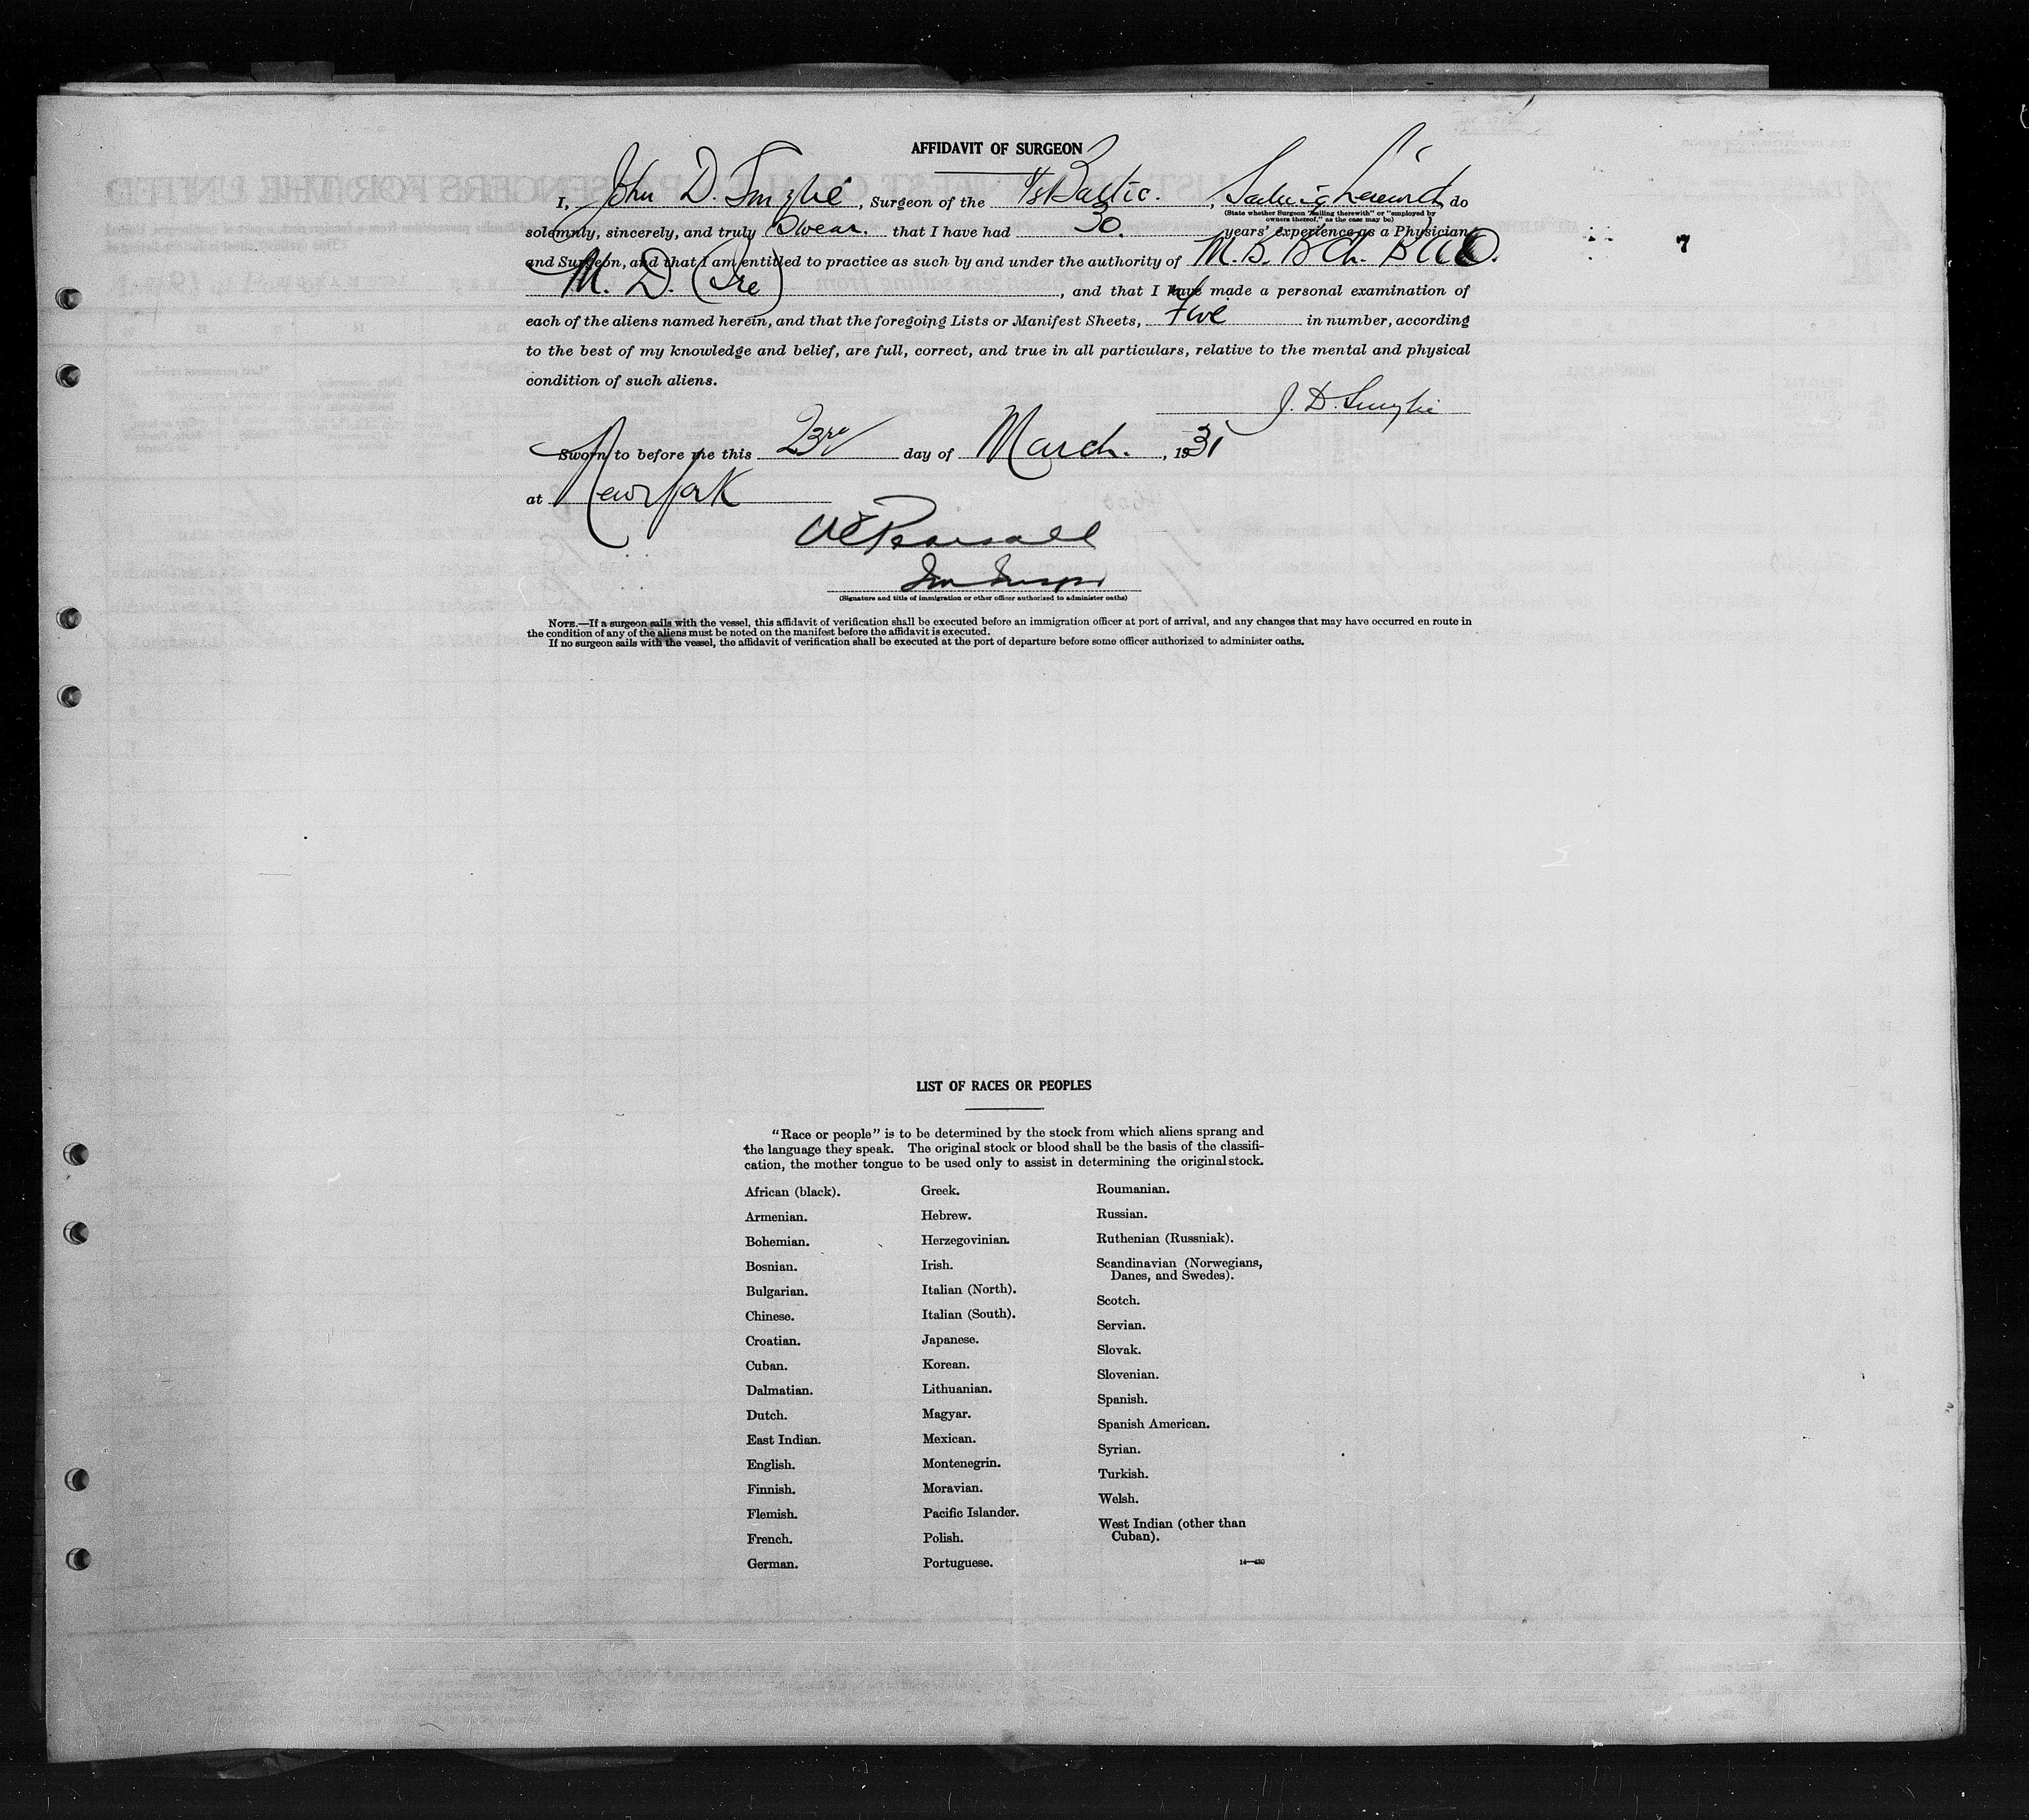 AFFIDAVIT OF SURGEON
I, John D. , Surgeon of the S/S Baltic. , Sailing therewith do
(State whether Surgeon "sailing therewith" or "employed by
owners thereof," as the case may be)
solemnly, sincerely, and truly Swear. that I have had 30. years' experience as a Physician
and Surgeon, and that I am entitled to practice as such by and under the authority of M. B. B Ch. B A O.
M. D. (Ire) , and that I have made a personal examination of
each of the aliens named herein, and that the foregoing Lists or Manifest Sheets, Five in number, according
to the best of my knowledge and belief, are full, correct, and true in all particulars, relative to the mental and physical
condition of such aliens.
J. D.
Sworn to before me this 23rd day of March. , 1931
at New York
Pearsall
Imm Inspr
(Signature and title of immigration or other officer authorized to administer oaths)
NOTE.—If a surgeon sails with the vessel, this affidavit of verification shall be executed before an immigration officer at port of arrival, and any changes that may have occurred en route in
the condition of any of the aliens must be noted on the manifest before the affidavit is executed.
If no surgeon sails with the vessel, the affidavit of verification shall be executed at the port of departure before some officer authorized to administer oaths.
7
LIST OF RACES OR PEOPLES
"Race or people" is to be determined by the stock from which aliens sprang and
the language they speak. The original stock or blood shall be the basis of the classifi-
cation, the mother tongue to be used only to assist in determining the original stock.
African (black).
Armenian.
Bohemian.
Bosnian.
Bulgarian.
Chinese.
Croatian.
Cuban.
Dalmatian.
Dutch.
East Indian.
English.
Finnish.
Flemish.
French.
German.
Greek.
Hebrew.
Herzegovinian.
Irish.
Italian (North).
Italian (South).
Japanese.
Korean.
Lithuanian.
Magyar.
Mexican.
Montenegrin.
Moravian.
Pacific Islander.
Polish.
Portuguese.
Roumanian.
Russian.
Ruthenian (Russniak).
Scandinavian (Norwegians,
Danes, and Swedes).
Scotch.
Servian.
Slovak.
Slovenian.
Spanish.
Spanish American.
Syrian.
Turkish.
Welsh.
West Indian (other than
Cuban).
14—430